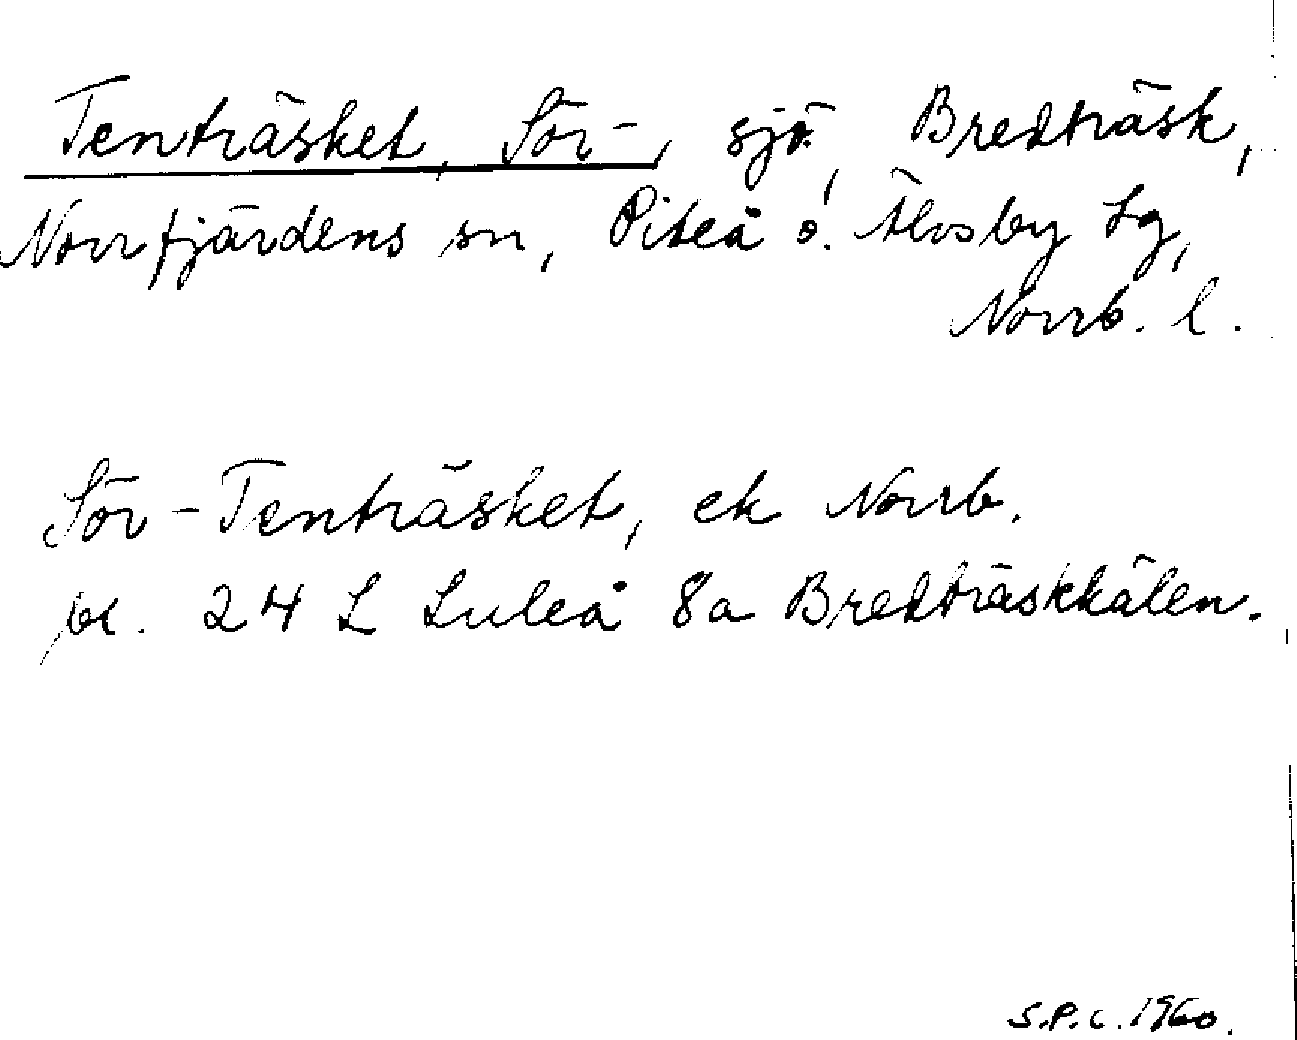 Tenträsket, Sör-, sjö, Bredträsk,
Norrfjärdens sn, Piteå o. Älvsby tg,
Norrb. l.
Sör-Tenträsket, ek Norrb.
bl. 24 L Luleå 8a Bredträskkälen.
S.P.C. 1960.